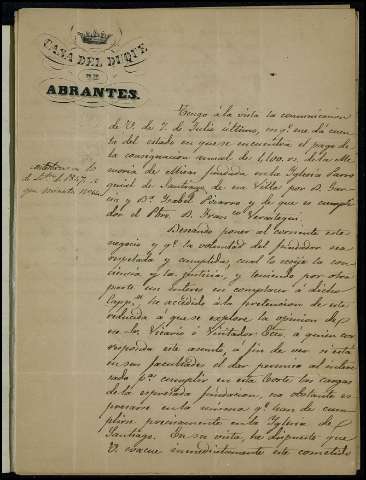 CASA DEL DUQUE
DE
ABRANTES.
Tengo á la vista la comunicacion
de V. de 7. de Julio último, en qe. me dá cuen-
ta del estado en que se encuentra el pago de
la consignacion anual de 1,100 rs. de la Me-
moria de Misas fundada en la Iglesia Parro
quial de Santiago de esa Villa por D. Gar-
cia y Da. Isabel Pizarro y de que es cumpli-
dor el Pbro. D. Franco.
contestada en
de 1847
que
Deseando poner al corriente este
negocio y qe. la voluntad del fundador sea
respetada y cumplida, cual lo exije la con-
ciencia y la justicia, y teniendo por otra
parte un interes en complacer á dicho
Cappn. he accedido á la pretension de este
reducida á que se explore la opinion de
Vicario ó Visitador Eco. á quien cor
responda este asunto, á fin de ver si está
en sus facultades el dar permiso al intere
sado pa. cumplir en esta Corte las cargas
de la espresada fundacion, no obstante es
presarse en la misma qe. han de cum-
plirse precisamente en la Iglesia de
Santiago. En su vista, he dispuesto que
V. evacue inmediatamente este cometido